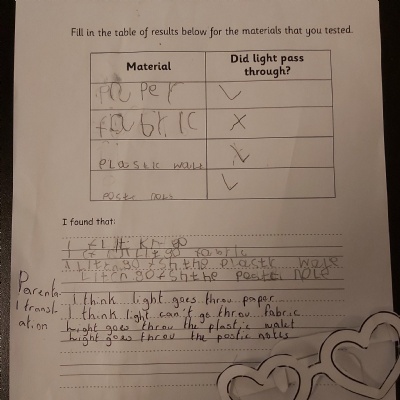 Fill in the table of results below for the materials that you tested.
Material Did light pass through?
paper
fabric
plastic wale
poste note
I found that:
plastic wale
note
Parental translation
I think light goes throu paper
I think light can't go throu fabric
Light goes throu the plastic walet
Light goes throu the postic notes